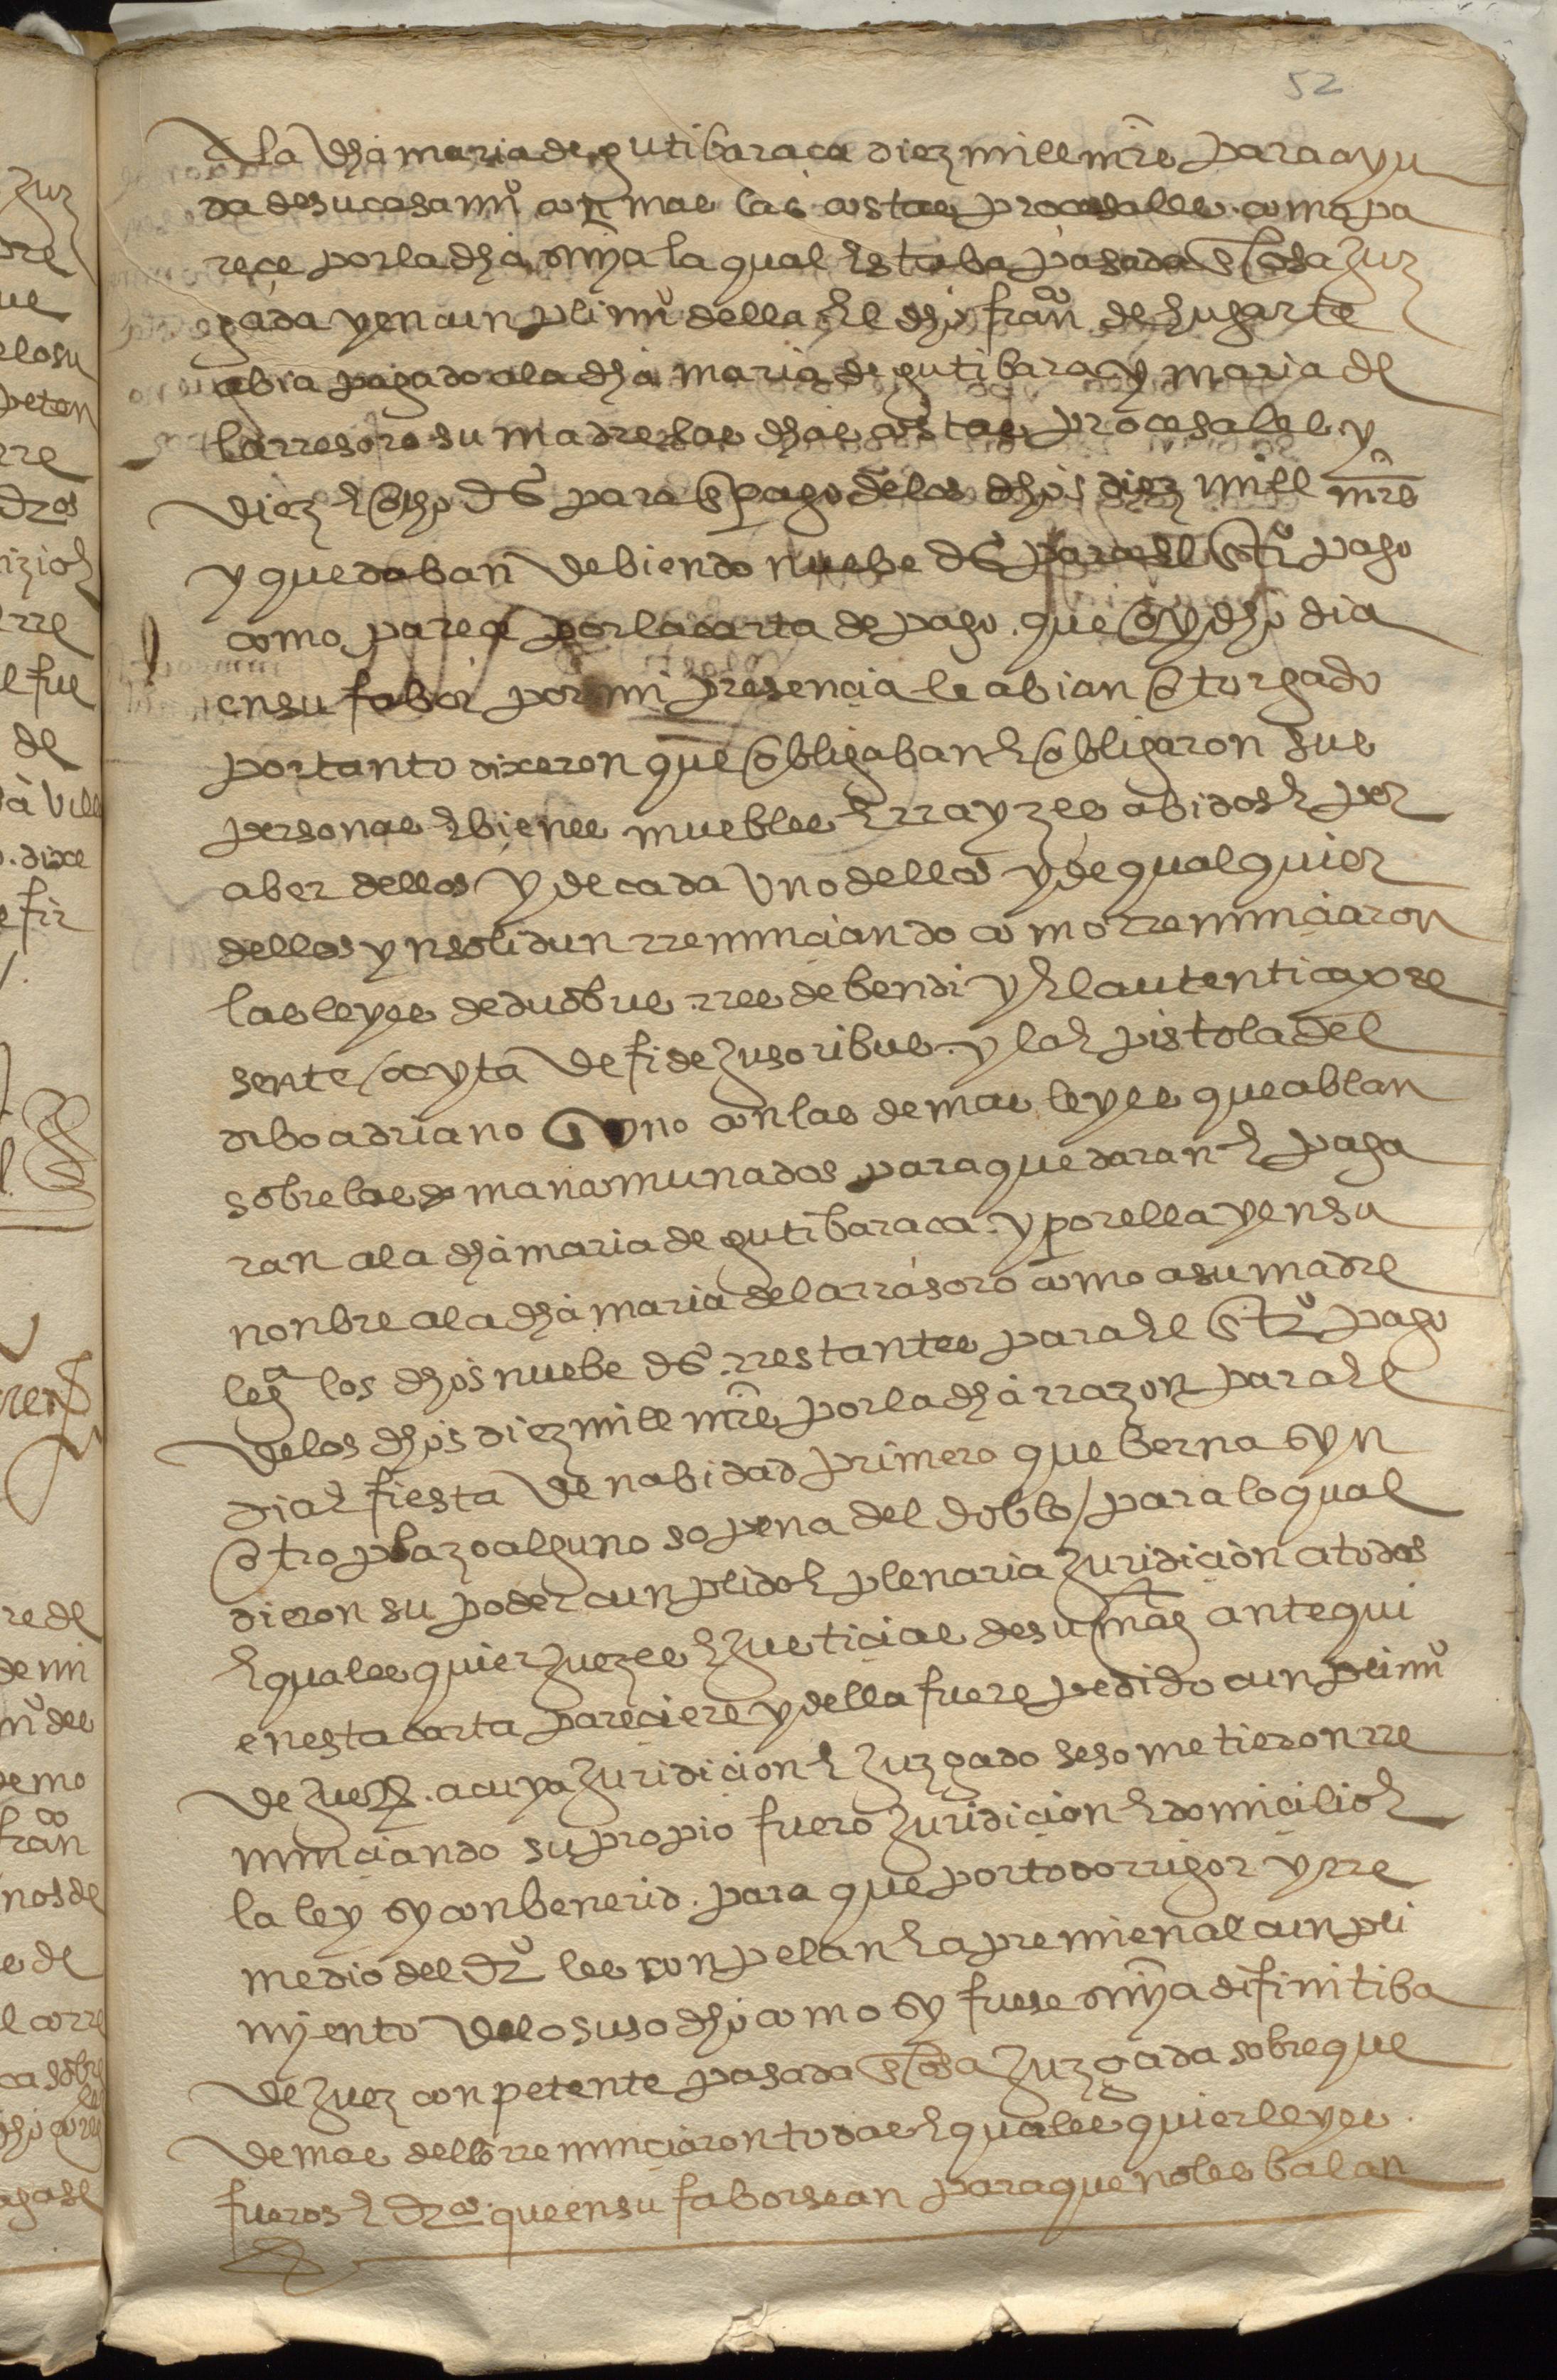 52
a la dha maria de gutibaraca diez mill mrs para ayu
da de su casamiº con mas las costas procesales como pa
reçe por la dha snya la qual estaba pasada en cosa juz
gada y en cunplimiº della el dho franco de hugarte
abia pagado a la dha maria de gutibara y maria de
larresoro su madre las dhas costas procesales y
diez e ocho ds para en pago de los dhos diez mill mrs
y quedaban debiendo nuebe ds para el entrº pago
como pareçe por la carta de pago que oy dho dia
en su fabor por mi presencia le abian otorgado
por tanto dixeron que obligaban e obligaron sus
personas e bienes muebles e rrayzes abidos e por
aber dellos y de cada uno dellos y de qualquier
dellos ynsolidun rrenunciando como rrenunciaron
las leyes de duobus rres debendi y el autentica pre
sente oc yta de fidejusoribus y la epistola del
dibo adriano con las demas leyes que ablan
sobre los mancomunados para que daran e paga
ran a la dha maria de gutibaraca y por ella y en su
nonbre a la dha maria de larrasoro como a su madre
lega los dhos nuebe ds rrestantes para el entrº pago
de los dhos diez mill mrs por la dha rrazon para el
dia e fiesta de nabidad primero que berna syn
otro plazo alguno so pena del doblo / para lo qual
dieron su poder cunplido e plenaria juridicion a todos
e quales quier juezes e justicias de su magd ante qui
en esta carta pareciere y della fuere pedido cunplimiº
de justª a cuya juridicion e juzgado se sometieron rre
nunciando su propio fuero juridicion e domicilio e
la ley sy conbenerid para que por todo rrigor y rre
medio del drº les conpelan e apremien al cunpli
myento de lo suso dho como sy fuese snya difinitiba
de juez conpetente pasada en cosa juzgada sobre que
demas dello rrenunciaron todas e quales quier leyes
fueros e dros que en su fabor sean para que no les balan